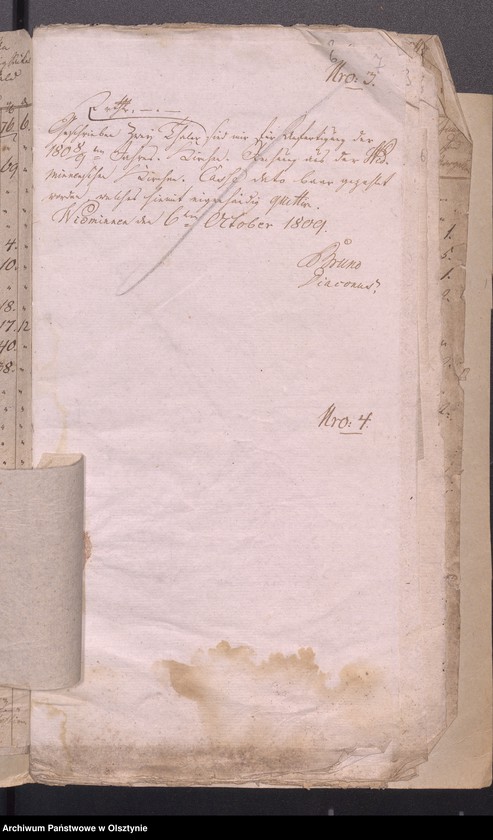 Nro: 3.
2 rth. —.—
Geschrieben Zwey Thaler sind mir für Anfertigung der
180 8/9 ten Jahres. Kirchen. Rechnung aus der Wid
minnenschen Kirchen. Casse dato baar gezahlt
worden, welches hiemit eigenhändig quittire.
Widminnen den 6ten October 1809.
Bruno
Diaconus.
Nro: 4.
4.
10.
18.
17. 12
40.
Archiwum Państwowe w Olsztynie